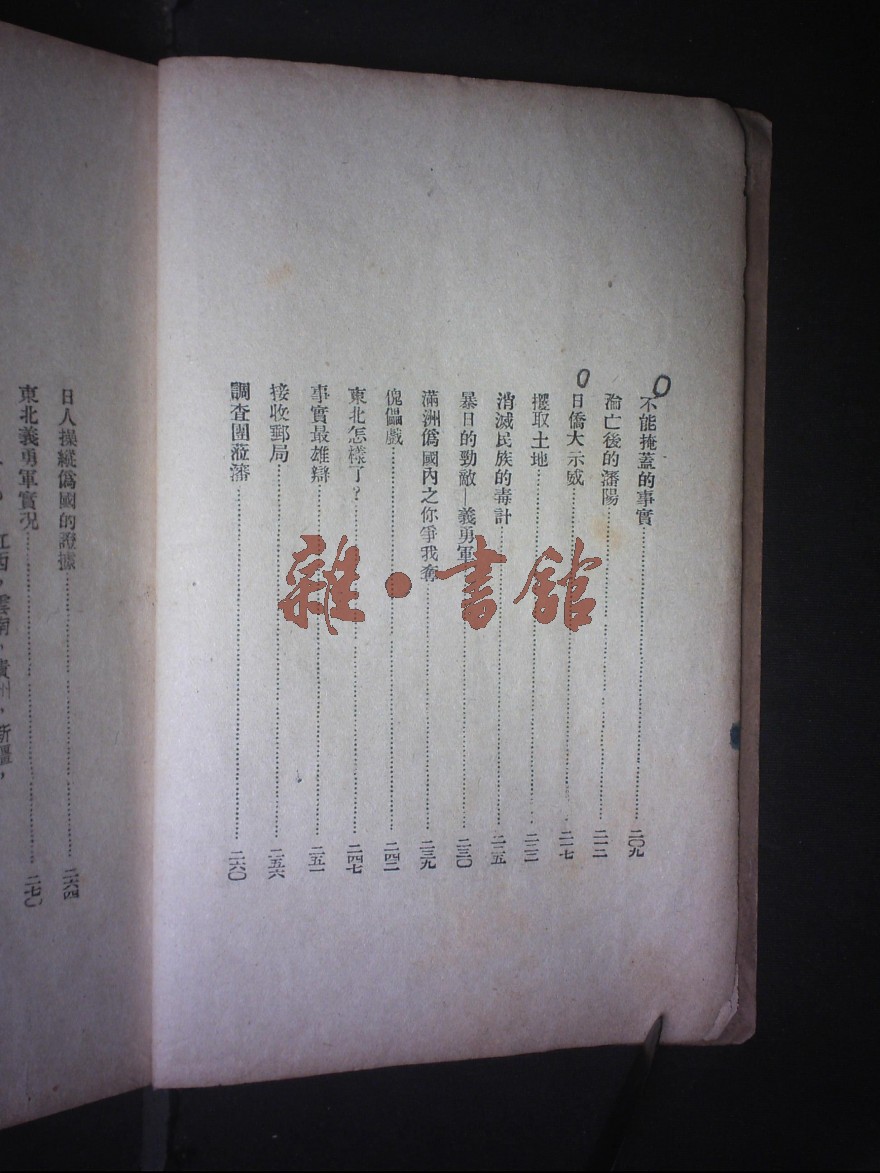 不能掩蓋的事實⋯⋯二〇九
淪亡後的瀋陽⋯⋯二一二
日僑大示威⋯⋯二一七
攫取土地⋯⋯二二二
消滅民族的毒計⋯⋯二二五
暴日的勁敵—義勇軍⋯⋯二三〇
滿洲僞國內之你爭我奪⋯⋯二三九
傀儡戲⋯⋯二四二
東北怎樣了？⋯⋯二四七
事實最雄辯⋯⋯二五一
接收郵局⋯⋯二五六
調查團蒞瀋⋯⋯二六〇
日人操縱僞國的證據⋯⋯二六四
東北義勇軍實況⋯⋯二七〇
江西，雲南，貴州，新疆，
雜·書館